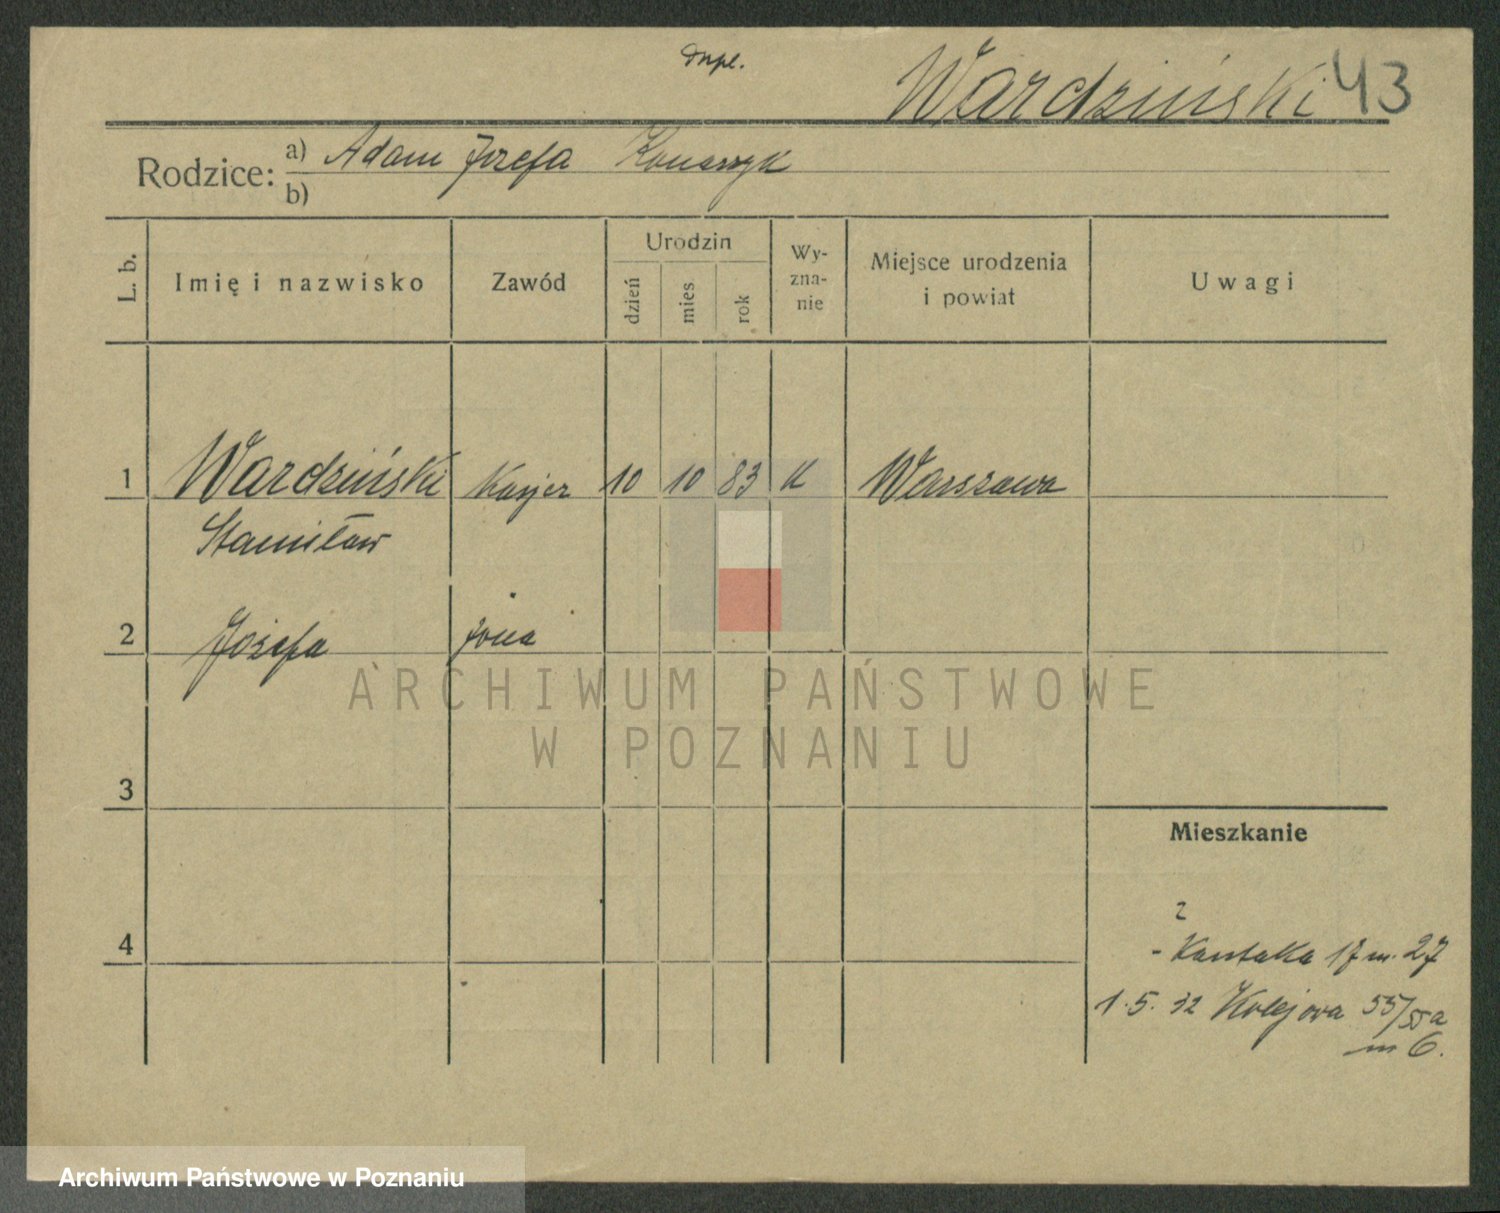 dupl.
Wardziński 43
Rodzice: a) Adam Józefa
b)
L. b. Imię i nazwisko Zawód Urodzin dzień mies rok Wy-zna-nie Miejsce urodzenia i powiat Uwagi
1 Wardziński Kasjer 10 10 83 K Warszawa
Stanisław
2 Józefa żona
3
Mieszkanie
4
- Kantaka 17 m. 27
1. 5. 32 Kolejowa 53/55a
m 6.
ARCHIWUM PAŃSTWOWE
W POZNANIU
Archiwum Państwowe w Poznaniu